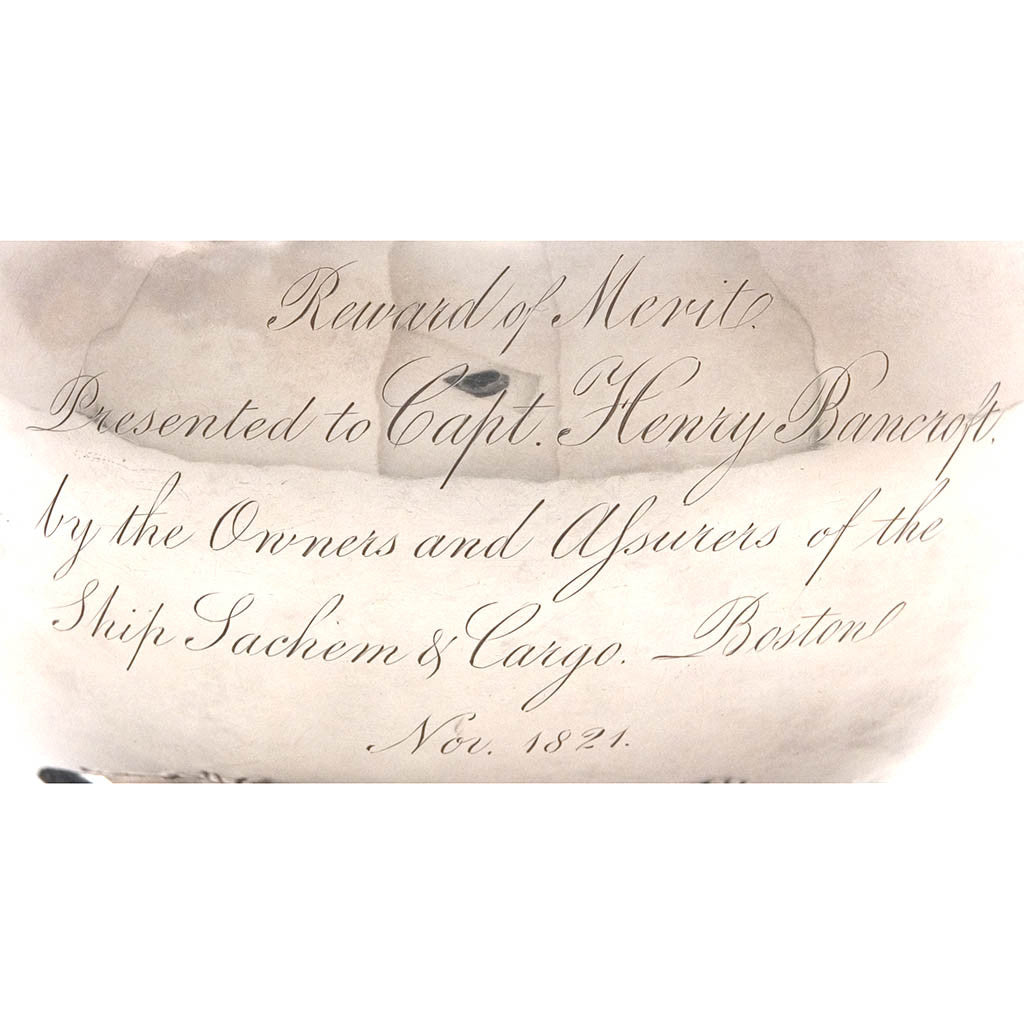 Reward of Merit.
Presented to Capt. Henry Bancroft.
by the Owners and Aſsurers of the
Ship Sachem & Cargo. Boston
Nov. 1821.